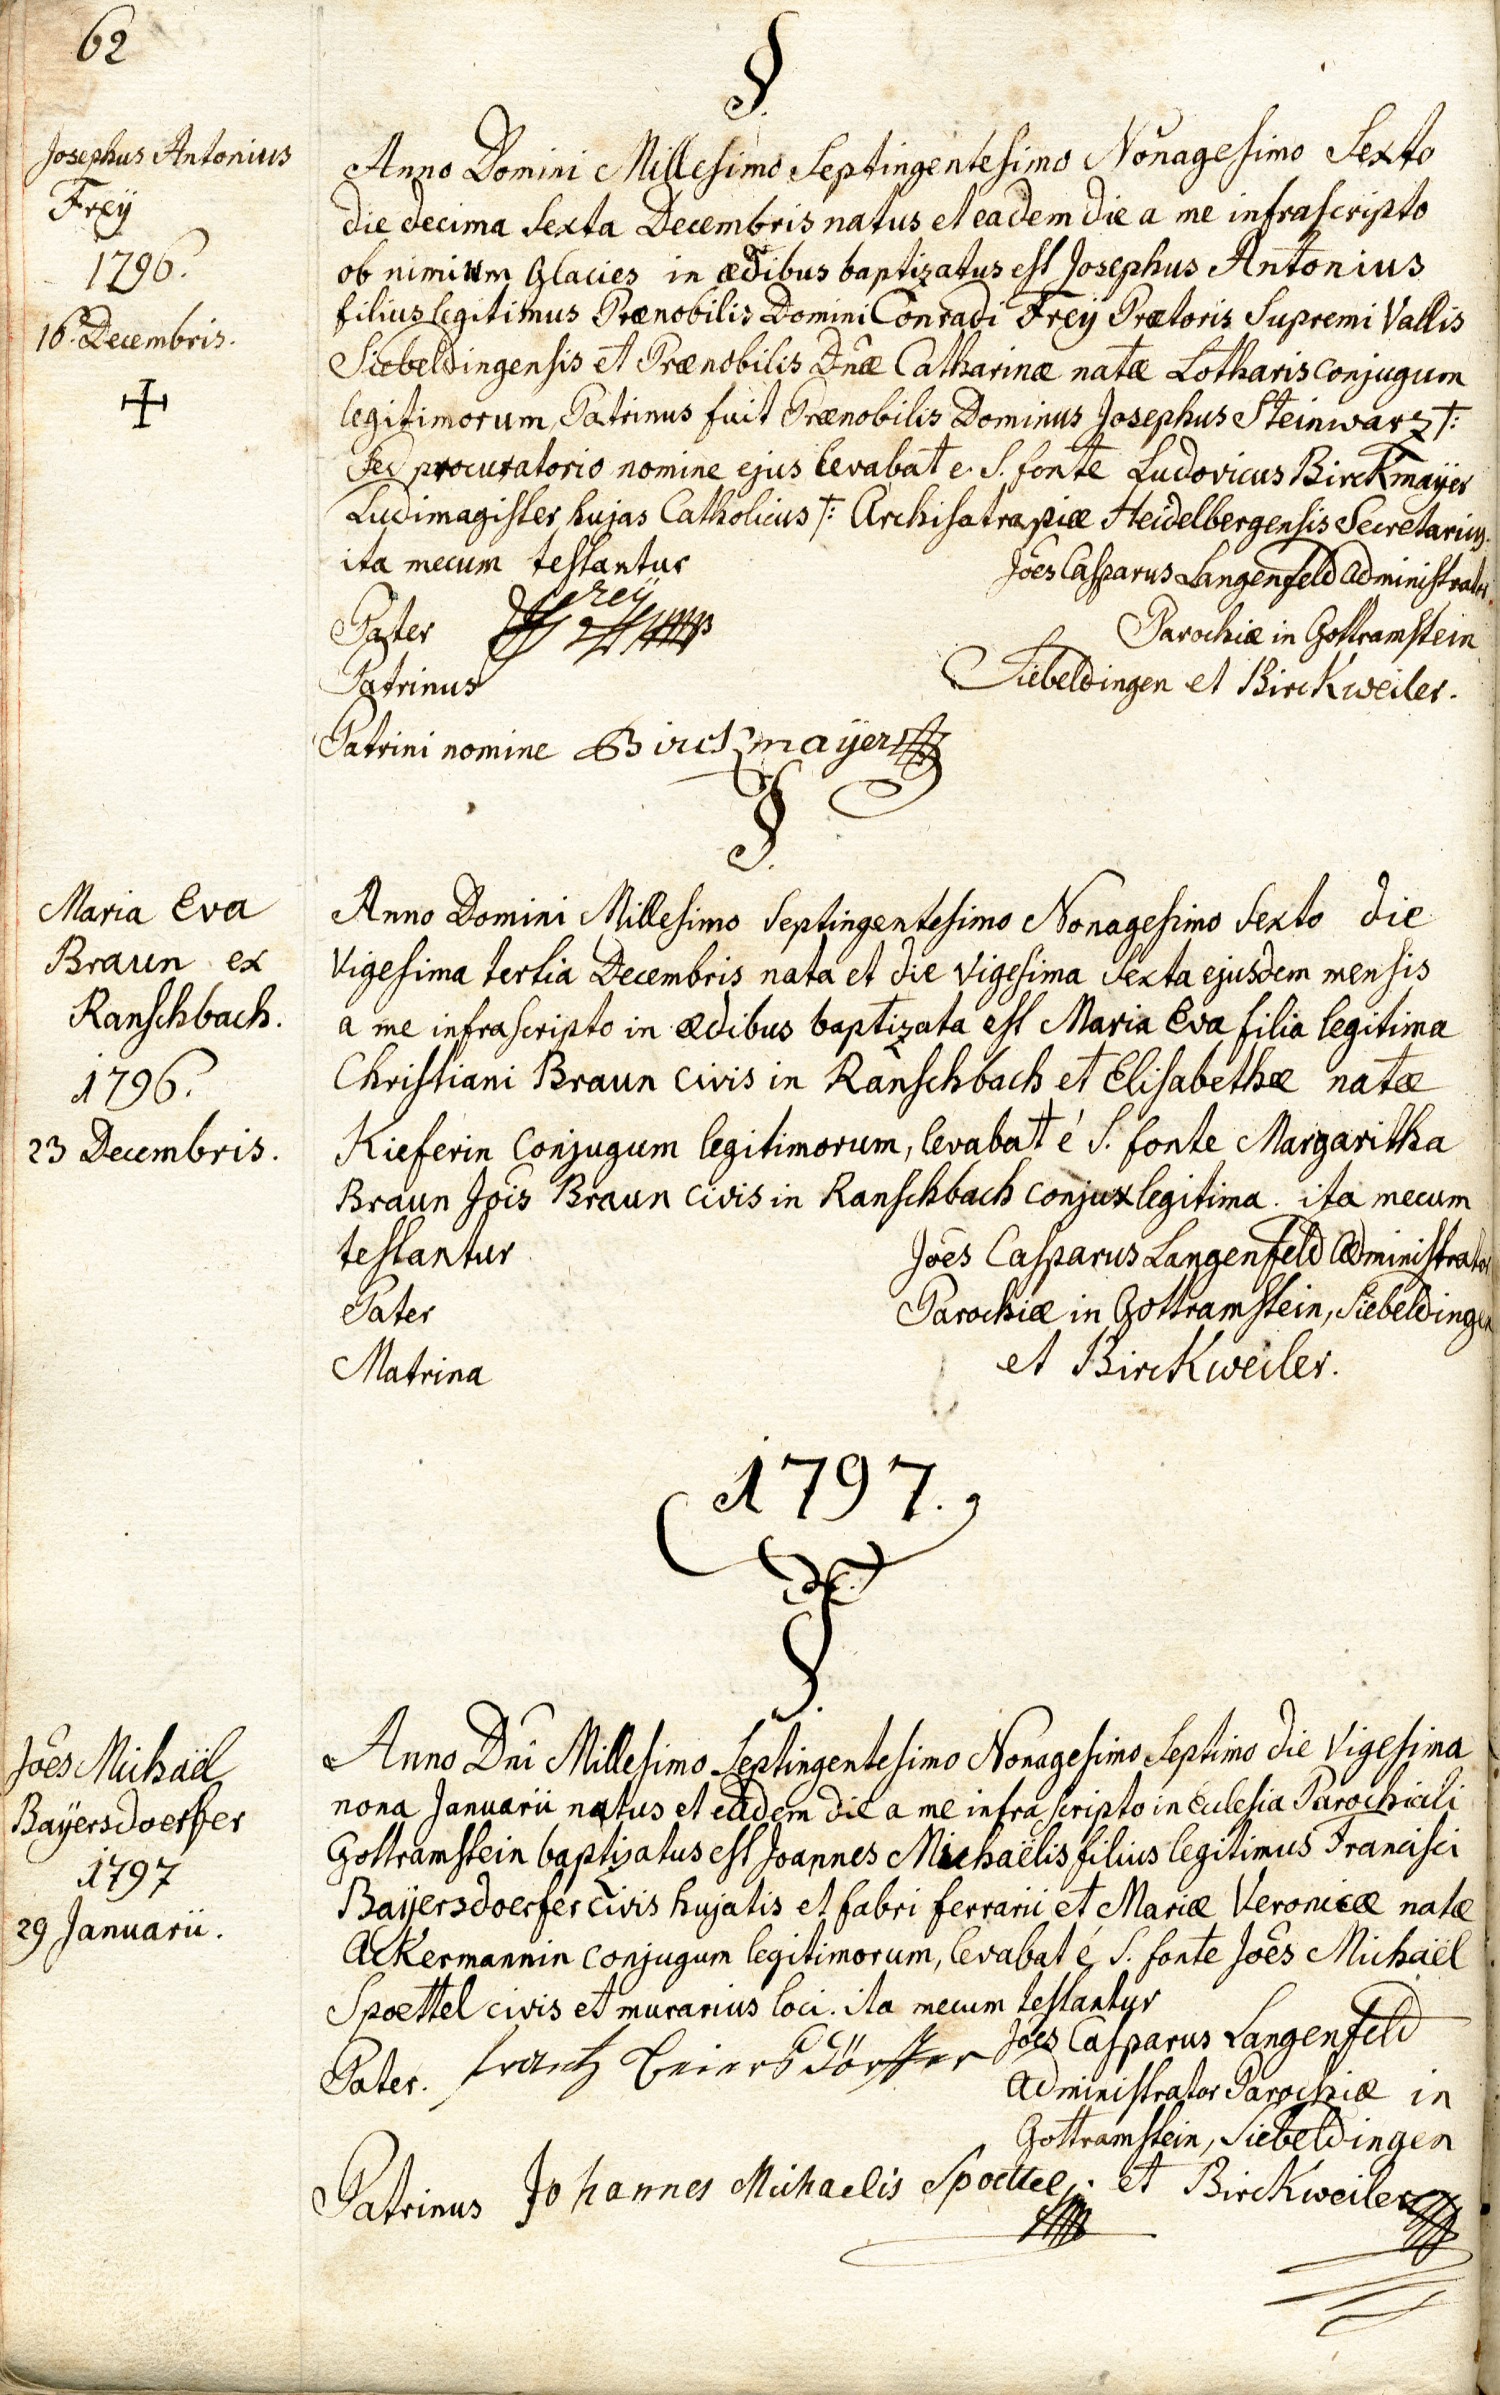 62
§.
Josephus Antonius
Freÿ
1796.
16. Decembris.
Anno Domini Millesimo Septingentesimo Nonagesimo Sexto
die decima Sexta Decembris natus et eadem die a me infrascripto
ob nimium Glacies in ædibus baptizatus est Josephus Antonius
filius legitimus Prænobilis Domini Conradi Freÿ Prætoris Supremi Vallis
Siebeldingensis et Prænobilis Dnæ Catharinæ natæ Lotharis conjugum
legitimorum, Patrinus fuit Prænobilis Dominus Josephus Steinwarz †:
sed procuratorio nomine ejus levabat e S. fonte Ludovicus Birckmaÿer
Ludimagister hujas Catholicus †: Archisatrapiæ Heidelbergensis Secretarius.
ita mecum testantur
Joês Casparus Langenfeld administrator
Parochiæ in Gottramstein
Siebeldingen et Birckweiler.
Pater Freÿ
Patrinus
Patrini nomine Birckmaÿer
§.
Maria Eva
Braun ex
Ranschbach.
1796.
23 Decembris.
Anno Domini Millesimo Septingentesimo Nonagesimo Sexto die
Vigesima tertia Decembris nata et die vigesima Sexta ejusdem mensis
a me infrascripto in ædibus baptizata est Maria Eva filia legitima
Christiani Braun civis in Ranschbach et Elisabethæ natæ
Kieferin conjugum legitimorum, levabat é S. fonte Margaritha
Braun Jois Braun civis in Ranschbach conjux legitima. ita mecum
testantur
Joês Casparus Langenfeld Administrator
Parochiæ in Gottramstein, Siebeldingen
et Birckweiler.
Pater
Matrina
1797.
§.
Joês Michaël
Baÿersdoerfer
1797
29 Januarii.
Anno Dni Millesimo Septingentesimo Nonagesimo Septimo die Vigesima
nona Januarii natus et eadem die a me infra scripto in Eclesia Parochiali
Gottramstein baptizatus est Joannes Michaëlis filius legitimus Francisci
Baÿersdoerfer civis hujatis et fabri ferrarii et Mariæ Veronicæ natæ
Ackermannin conjugum legitimorum, levabat é S. fonte Joês Michaël
Spoettel civis et murarius loci. ita mecum testantur
Joês Casparus Langenfeld
Administrator Parochiæ in
Gottramstein, Siebeldingen
et Birckweiler
Pater. frantz beiersdörffer
Patrinus Johannes Michaelis Spoettel.